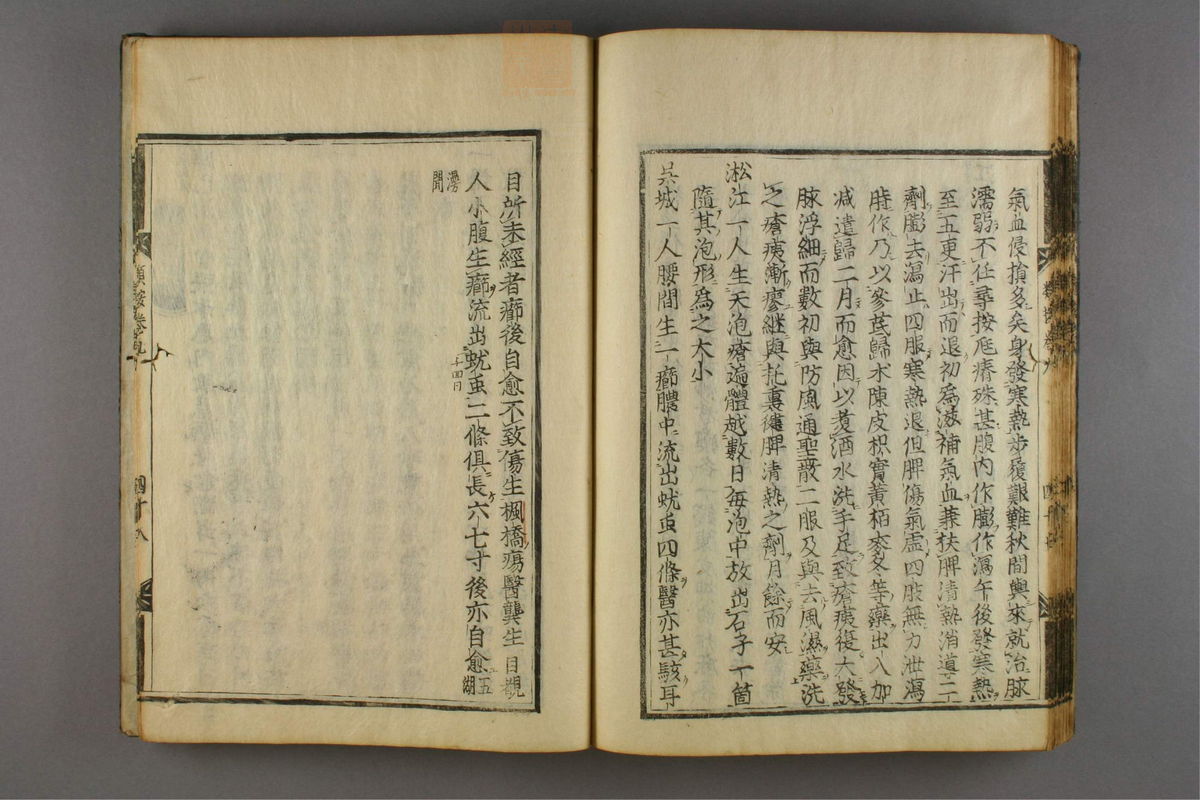 氣血侵損多矣身發寒熱步履艱難秋間輿來就治脉
濡弱不任尋按瘧瘠殊甚腹內作膨作瀉午後發寒熱
至五更汗出而退初爲滋補氣血兼扶脾清熱消導二
劑膨去瀉止四服寒熱退但脾傷氣虛四肢無力泄瀉
時作乃以參芪歸朮陳皮枳實黃栢麥冬等藥出入加
減遣歸二月而愈因以煑酒水洗手足致瘡痍復大發
脉浮細而數初與防風通聖散二服及與去風濕藥洗
之瘡痍漸瘳繼與托裏健脾清熱之劑月餘而安
淞江一人生天泡瘡遍體越數日每泡中放出石子一箇
隨其泡形爲之大小
吳城一人腰間生一癤膿中流出蚘虫四條醫亦甚駭耳
目所未經者癤後自愈不致傷生楓橋瘍醫龔生目覩
人小腹生癤流出蚘虫二條俱長六七寸後亦自愈五湖
漫聞
類按卷九
四十八